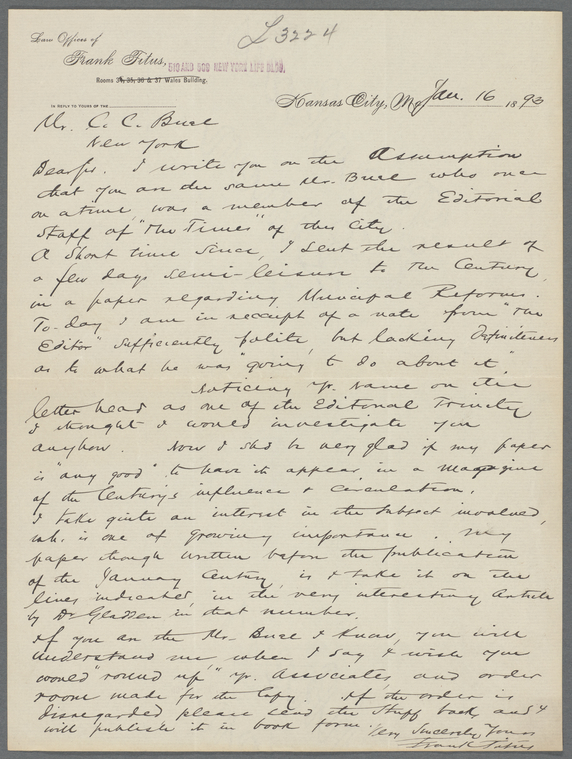 L 3224
Law Offices of
Frank Titus,
519 AND 520 NEW YORK LIFE BLDG,
Rooms 34, 35, 36 & 37 Wales Building.
IN REPLY TO YOURS OF THE
Kansas City, Mo. Jan. 16 1893
Mr. C. C. Buel
New York
Dear Sir. I write you on the Assumption
that you are the same Mr. Buel who once
on a time, was a member of the Editorial
Staff of "The Times" of this City.
A short time since, I sent the result of
a few days semi-leisure to The Century,
in a paper regarding Municipal Reforms.
To-day I am in receipt of a note from "The
Editor" sufficiently polite, but lacking Definiteness
as to what he was "going to do about it".
Noticing yr. name on the
letter head as one of the Editorial Trinity
I thought I would investigate you
anyhow. Now I shd be very glad if my paper
is "any good" to have it appear in a magazine
of the Century's influence & circulation.
I take quite an interest in the subject involved,
wh. is one of growing importance. My
paper though written before the publication
of the January Century, is I take it on the
lines indicated, in the very interesting Article
by Dr Gladden, in that number.
If you are the Mr. Buel I know, you will
understand me when I say I wish you
would "round up" yr. associates and order
room made for the copy. If the order is
disregarded please send the stuff back, and I
will publish it in book form.
Very Sincerely Yours
Frank Titus